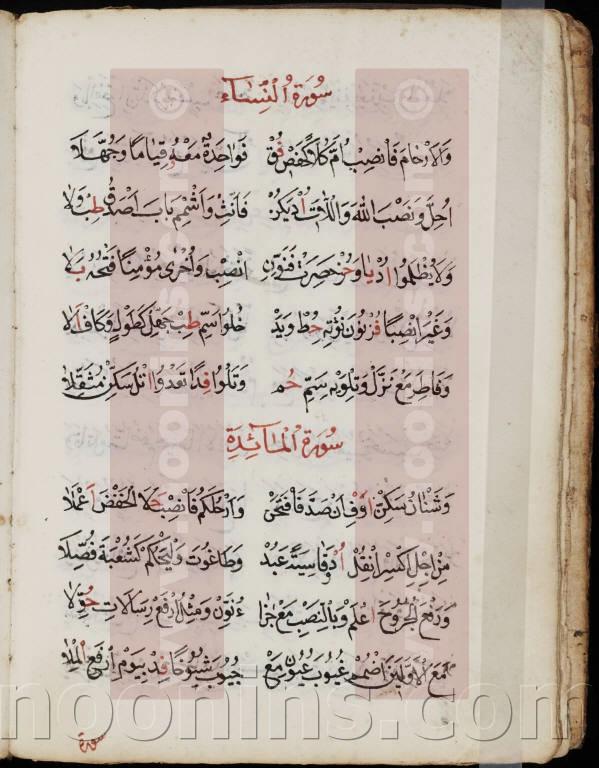 سورة النساء
والارحام فانصب ام كلا كحفص فق فواحدة معه قياما وجهلا
احل ونصب الله واللات اد يكن فانث واشمم باب اصدق طب ولا
ولا يظلموا اد يا وحز حصرت فنون انصب واخرى مؤمنا فتحه بلا
وغير انصبا فز نون نؤتيه حط ويد خلوا سم طب جهل كطول وكاف الا
وفاطر مع نزل وتلويه سم حم وتلوا فدا تعدوا اتل سكن مثقلا
سورة المائدة
وشنان سكن اوف ان صد فافتحن وارجلكم فانصب حلا الخفض اعملا
من اجل اكسر انقل اد وقاسية عبد وطاغوت وليحكم كشعبة فصلا
ورفع الجروح اعلم وبالنصب مع جزا ءنون ومثل ارفع رسالات حولا
مع الاولين اضمم غيوب عيون مع جيوب شيوخا فد بيوم ارفع الملا
سورة
noonins.com